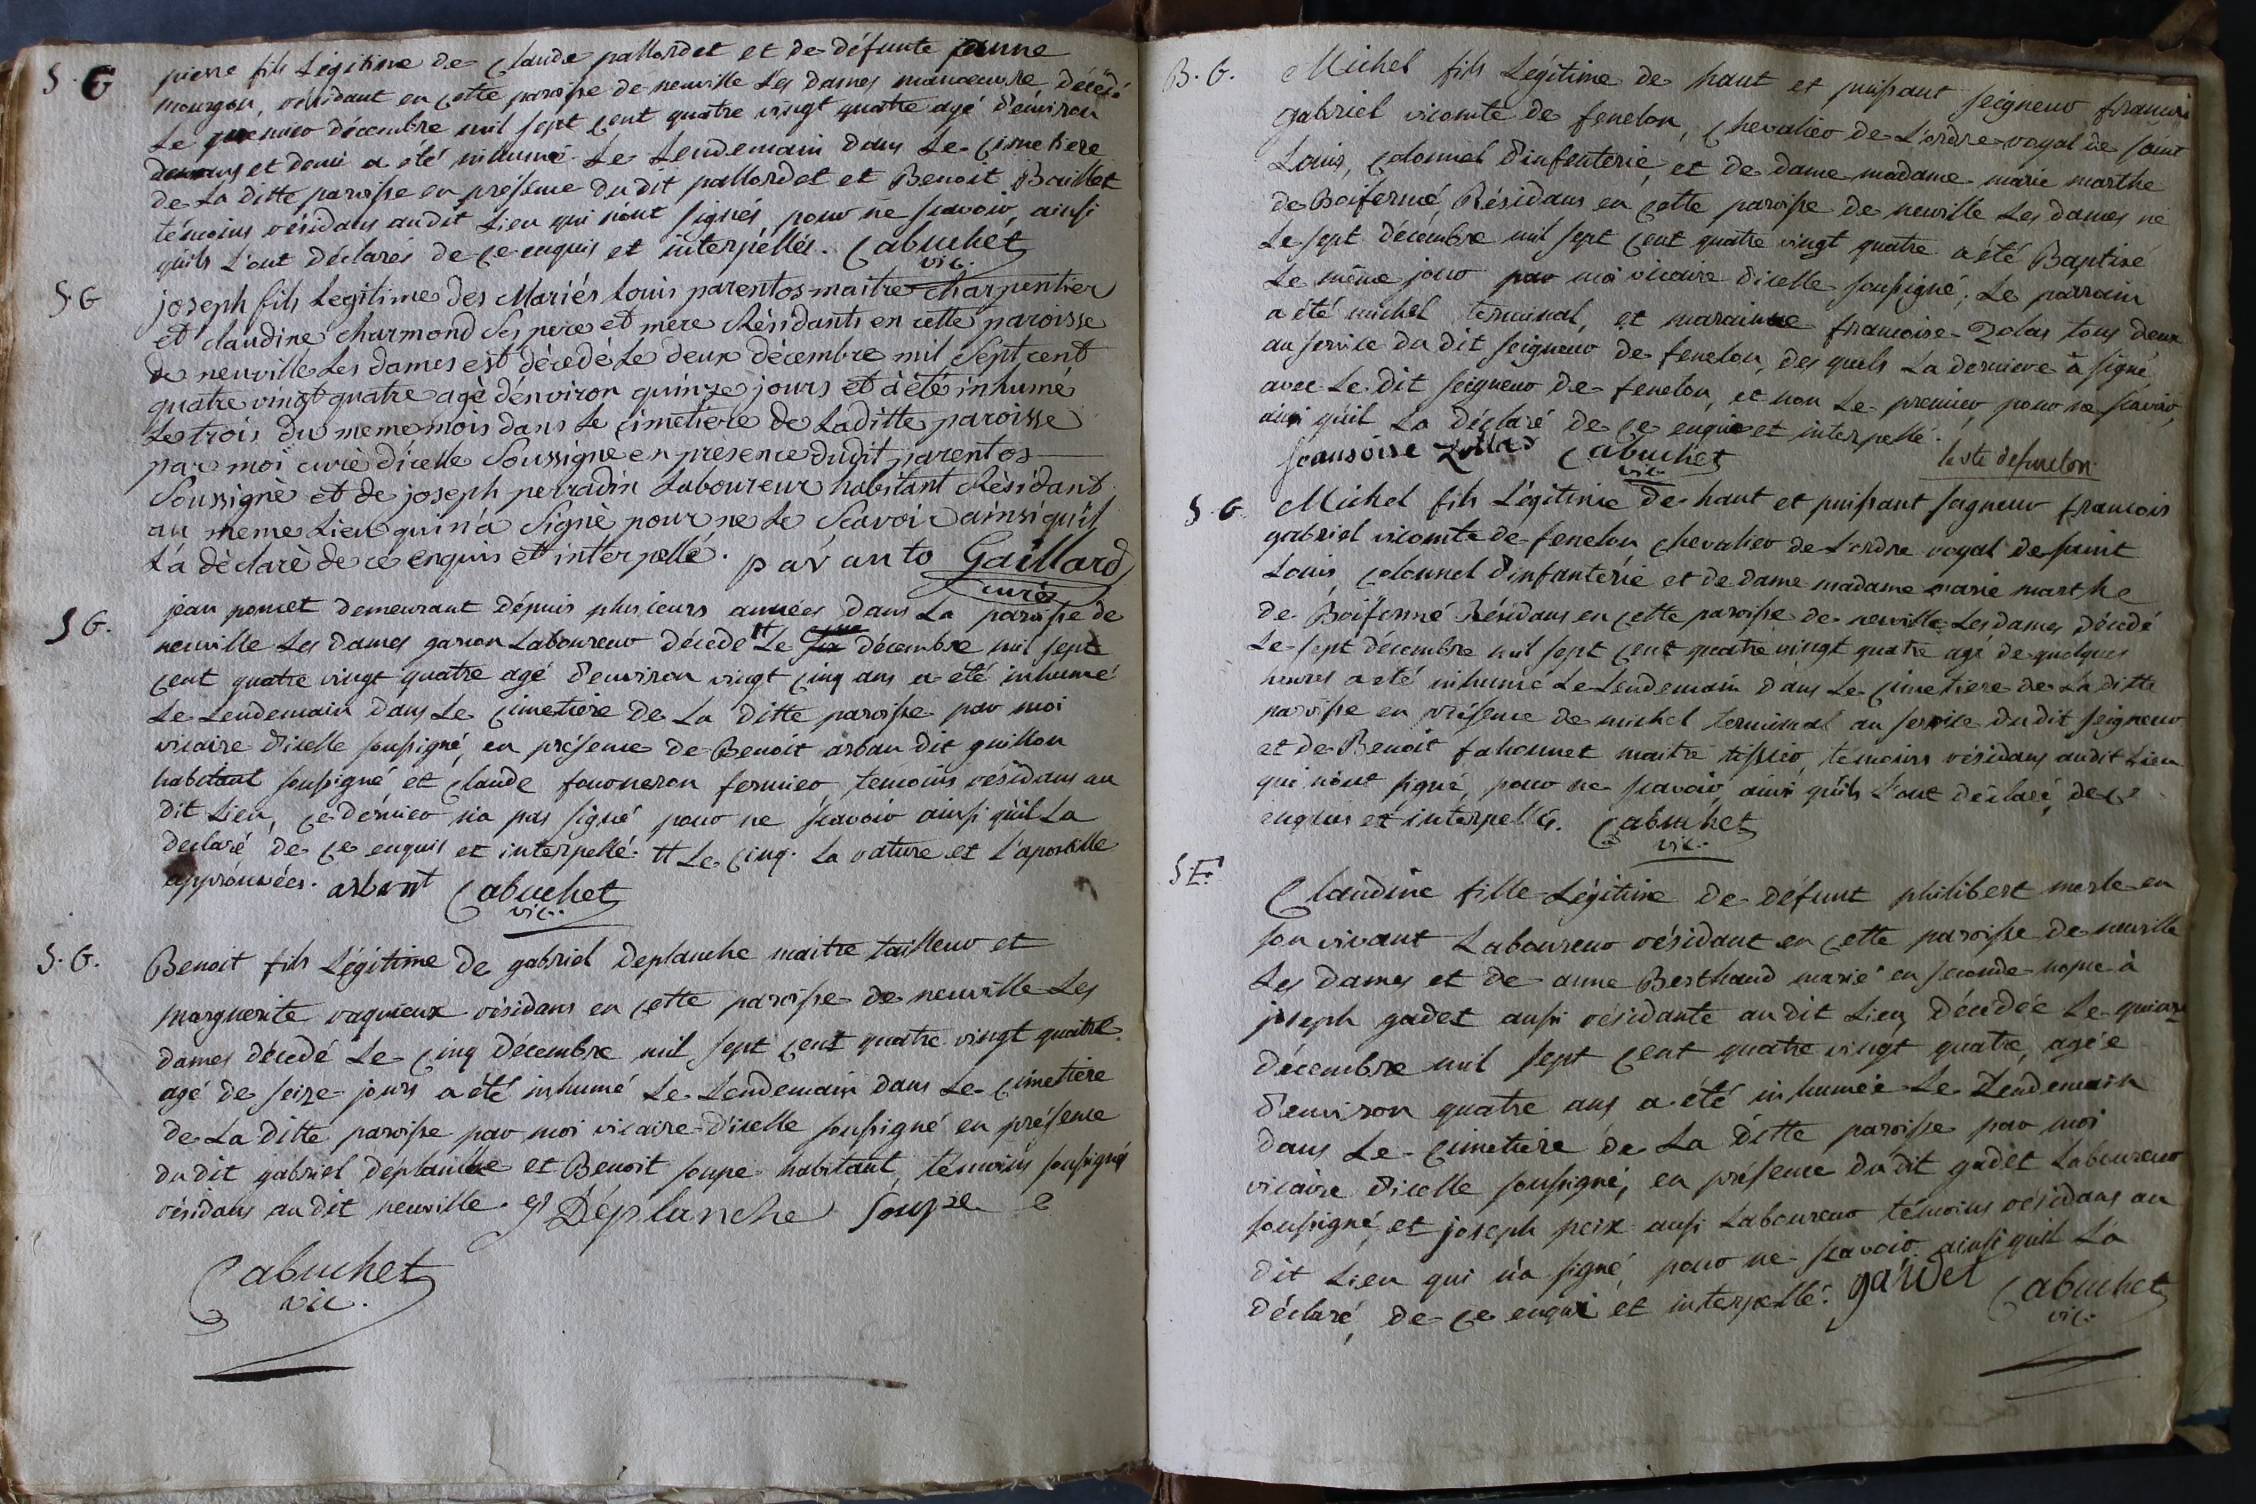 S. G
pierre fils Légitime de Claude pallordet et de défunte jeanne
mourgon, résidant en cette paroisse de neuville Les Dames manoeuvre, décédé
Le premier décembre mil sept cent quatre vingt quatre agé d'environ
deux ans et demi a été inhumé Le Lendemain dans Le Cimetiere
de La ditte paroisse en présence du dit pallordet et Benoit Baillet
témoins résidans au dit Lieu qui n'ont signés, pour ne scavoir, ainsi
qu'ils L'ont Déclarés de ce enquis et interpellés. Cabuchet
vic.
S. G
joseph fils Legitime des Mariés Louis parentos maitre charpentier
et claudine charmond Ses pere et mere Résidants en cette paroisse
de neuville Les dames est décedé Le deux décembre mil Sept cent
quatre vingt quatre agé d'environ quinze jours et à été inhumé
Le trois du meme mois dans Le cimetiere de Laditte paroisse
par moi curè d'icelle Soussigne en prèsence dudit parentos
Soussignè et de joseph perradin Laboureur habitant Rèsidant
au meme Lieu qui n'a Signè pour ne Le Scavoir ainsi qu'il
L'a dèclarè de ce enquis et interpellé. paranto Gaillard
curé
S G.
jean poncet demeurant depuis plusieurs années dans La paroisse de
neuville Les Dames garson Laboureur décede tt Le six décembre mil sept
cent quatre vingt quatre agé d'environ vingt cinq ans a été inhumé
Le Lendemain dans Le Cimetiere de La ditte paroisse par moi
vicaire d'icelle soussigné, en présence de Benoit arban dit guillon
habitant soussigné et Claude fouoneron fermier, temoins résidans au
dit Lieu, ce dernier n'a pas signé pour ne scavoir ainsi qu'il La
declaré de ce enquis et interpellé. tt Le cinq. La rature et L'apostille
approuvées. arbant Cabuchet
vic.
S. G.
Benoit fils Légitime de gabriel Deplanche maitre tailleur et
Marguerite vaquieux résidans en cette paroisse de neuville Les
Dames décedé Le cinq Décembre mil sept cent quatre vingt quatre
agé de seize jours a été inhumé Le Lendemain dans Le cimetiere
de La ditte paroisse par moi vicaire d'icelle soussigné en présence
du dit gabriel Déplanche et Benoit soupe habitant, témoins soussignés
résidans au dit neuville. g Déplanche Soupe
Cabuchet
vic.
B. G.
Michel fils Légitime de haut et puissant seigneur francois
gabriel vicomte de fenelon, Chevalier de L'ordre royal de saint
Louis, Colonnel d'infenterie, et de dame madame marie marthe
de Boisfermé, Résidans en cette paroisse de neuville Les dames né
Le sept décembre mil sept cent quatre vingt quatre a été Baptisé
Le même jour par moi vicaire d'icelle soussigné; Le parrain
a été michel terminal, et marainne francoise Zolas tous deux
au service du dit seigneur de fenelon, des quels La derniere à signé
avec Le dit seigneur de fenelon, et non Le premier, pour ne scavoir
ainsi qu'il La déclaré de ce enquis et interpellé.
fransoise Zollas Cabuchet le vte defenelon
vic.
S. G.
Michel fils Légitime de haut et puissant seigneur francois
gabriel vicomte de fenelon Chevalier de L'ordre royal de saint
Louis, colonnel d'infanterie et de dame madame marie marthe
de Boisfermé Résidans en cette paroisse de neuville Les dames décedé
Le sept décembre mil sept cent quatre vingt quatre agé de quelques
heures a été inhumé Le Lendemain dans Le cimetiere de La ditte
paroisse en présence de michel terminal au service du dit seigneur
et de Benoit fahonnet maitre tissier, témoins résidans au dit Lieu
qui n'ont signé, pour ne scavoir, ainsi qu'ils L'ont déclaré, de ce
enquis et interpellé. Cabuchet
vic.
S. F.
Claudine fille Légitime de défunt philibert merle en
son vivant Laboureur résidant en cette paroisse de neuville
Les Dames et de anne Berthaud marié en seconde nopce à
joseph gadet aussi résidante au dit Lieu, décedée Le quinze
décembre mil sept cent quatre vingt quatre, agée
d'environ quatre ans a été inhumée Le Lendemain
dans Le cimetiere de La ditte paroisse par moi
vicaire d'icelle soussigné, en présence du dit gadet Laboureur
soussigné, et joseph peix aussi Laboureur témoins résidans au
dit Lieu qui n'a signé, pour ne scavoir ainsi quil L'a
déclaré, de ce enquis et interpellé. gaudet Cabuchet
vic.